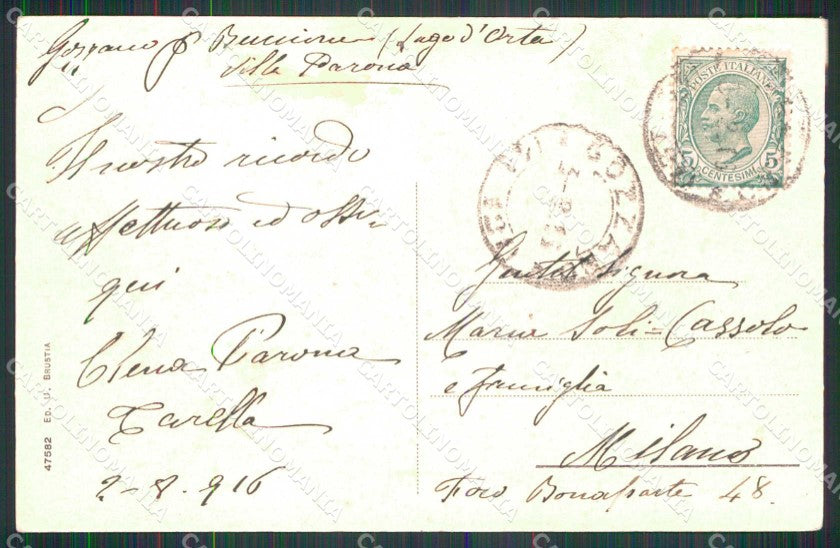 Gozzano p Buccione (Lago d'Orta)
Villa Parona
Il nostro ricordo
affettuoso ed osse-
qui
Elena Parona
Carella
2-8.916
47582 ED. U. BRUSTIA
POSTE ITALIANE
5 CENTESIMI 5
GOZZANO
Gentil Signora
Maria Soli-Cassolo
e famiglia
Milano
Foro Bonaparte 48.
CARTOLINOMANIA